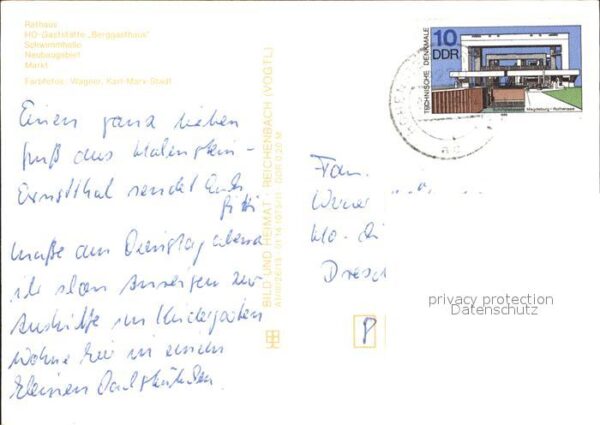 Rathaus
HO-Gaststätte „Berggasthaus"
Schwimmhalle
Neubaugebiet
Markt
Farbfotos: Wagner, Karl-Marx-Stadt
Einen ganz lieben
Gruß aus Hohenstein-
Ernstthal sendet Euch
mußte am Dienstag abend
zur
Aushilfe im Kindergarten
wohne hier in einem
kleinen Dachstübchen
BILD UND HEIMAT REICHENBACH (VOGTL)
10
DDR
TECHNISCHE DENKMALE
Magdeburg - Rothensee
Fam.
Werner
Dresd
P
privacy protection
Datenschutz